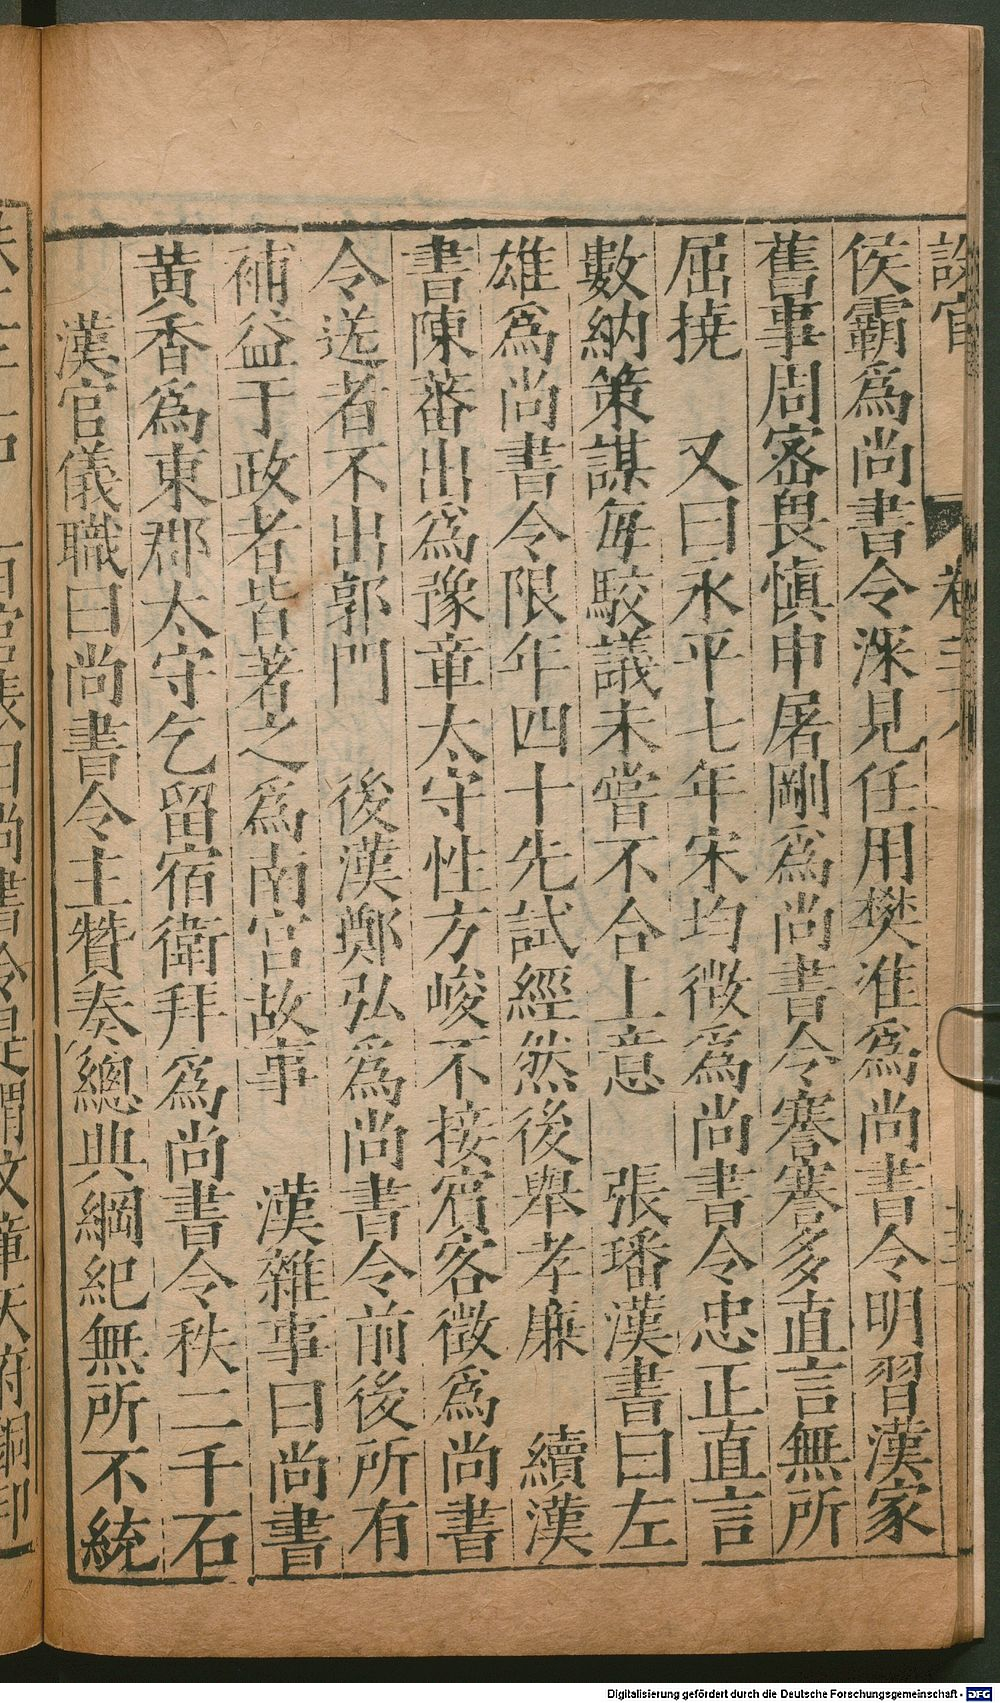 設官
卷三
侯霸爲尚書令深見任用樊准爲尚書令明習漢家
舊事周密畏慎申屠剛爲尚書令謇謇多直言無所
屈撓 又曰永平七年宋均徵爲尚書令忠正直言
數納策謀每駮議未嘗不合上意 張璠漢書曰左
雄爲尚書令限年四十先試經然後舉孝廉 續漢
書陳蕃出爲豫章太守性方峻不接賓客徵爲尚書
令送者不出郭門 後漢鄭弘爲尚書令前後所有
補益于政者皆著之爲南宫故事 漢雜事曰尚書
黄香爲東郡太守乞留宿衛拜爲尚書令秩二千石
漢官儀職曰尚書令主贊奏緫典綱紀無所不統
百官表曰尚書令是謂文章天府銅印
Digitalisierung gefördert durch die Deutsche Forschungsgemeinschaft - DFG